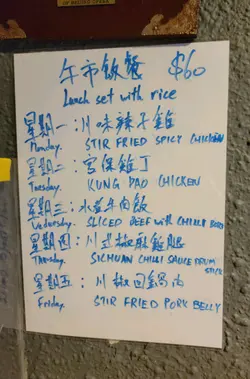 午市飯餐 $60
Lunch set with rice
星期一：川味辣子雞
Monday. STIR FRIED SPICY CHICKEN
星期二：宮保雞丁
Tuesday. KUNG PAO CHICKEN
星期三：水煮牛肉飯
Wednesday. SLICED BEEF with CHILLI
星期四：川式椒麻雞腿
Thursday. SICHUAN CHILLI SAUCE DRUM STICK
星期五：川椒回鍋肉
Friday STIR FRIED PORK BELLY